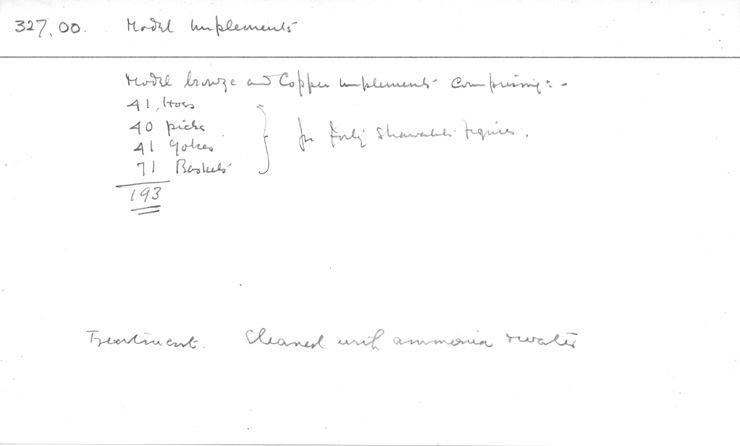 327,00. Model Implements
Model bronze and Copper implements comprising:-
41, Hoes
40 picks
41 Yokes
71 Baskets
for forty Shawabti figures.
193
Treatment. Cleaned with ammonia & water